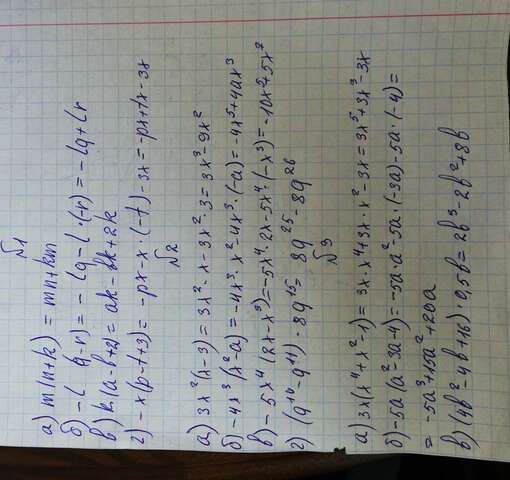 №1
а) m(n+k) = mn+km
б) -l (q-r) = -lq-l·(-r) = -lq+lr
в) k·(a-b+2) = ak-bk+2k
г) -x(p-t+3) = -px-x·(-t)-3x = -px+tx-3x
№2
а) 3x²(x-3) = 3x²·x-3x²·3 = 3x³-9x²
б) -4x³(x²-a) = -4x³·x²-4x³·(-a) = -4x⁵+4ax³
в) -5x⁴(2x-x³) = -5x⁴·2x-5x⁴·(-x³) = -10x⁵+5x⁷
г) (q¹⁰-q¹¹)·8q¹⁵ = 8q²⁵-8q²⁶
№3
а) 3x(x⁴+x²-1) = 3x·x⁴+3x·x²-3x = 3x⁵+3x³-3x
б) -5a(a²-3a-4) = -5a·a²-5a·(-3a)-5a·(-4) =
= -5a³+15a²+20a
в) (4b²-4b+16) 0,5b = 2b³-2b²+8b